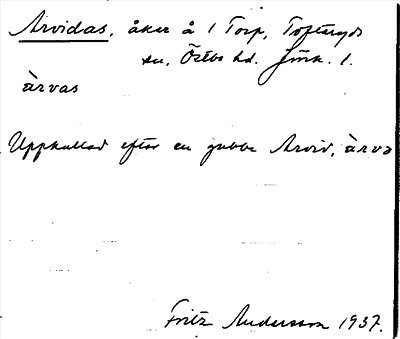 Arvidas, åker å 1 Torp, Tofteryds
sn, Östbo hd. Jönk. l.
àrvas
Uppkallad efter en gubbe Arvid, àrva
Fritz Andersson 1937.